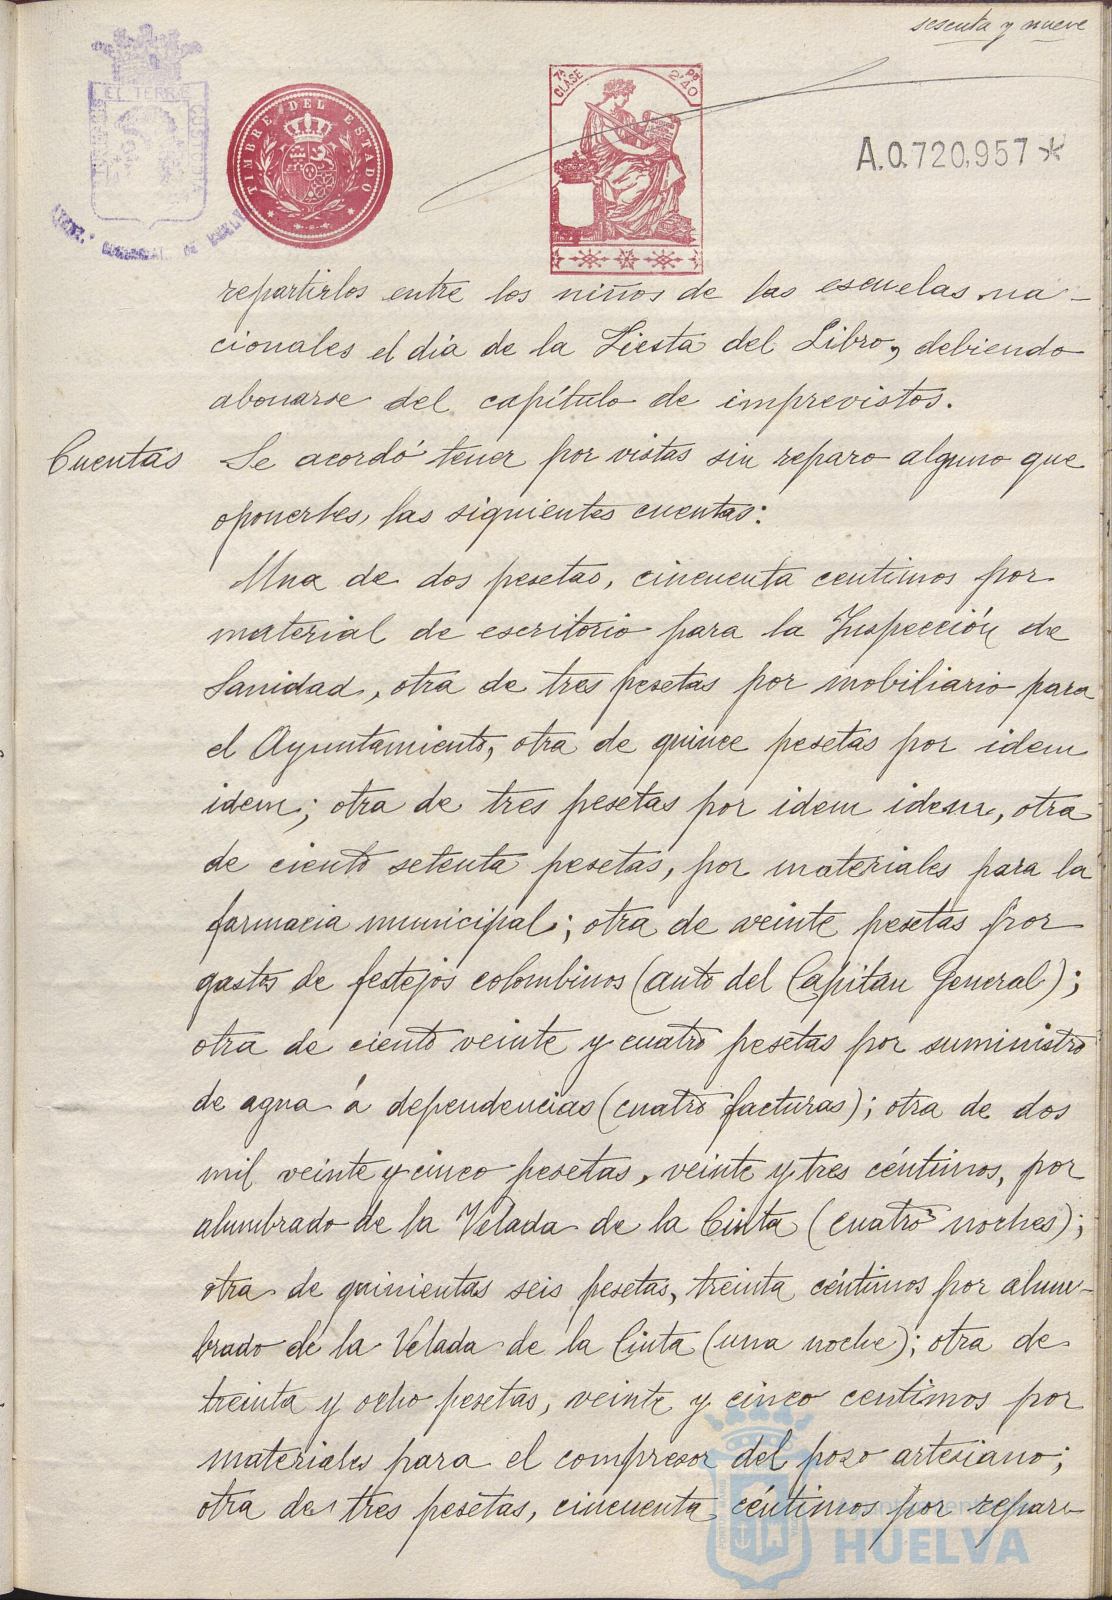 sesenta y nueve
EL TERRE
TIMBRE DEL ESTADO
7ª CLASE
2'40
A.0.720,957*
repartirlos entre los niños de las escuelas na-
cionales el día de la Fiesta del Libro, debiendo
abonarse del capítulo de imprevistos.
Cuentas Se acordó tener por vistas sin reparo alguno que
oponerles, las siguientes cuentas:
Una de dos pesetas, cincuenta centimos por
material de escritorio para la Inspección de
Sanidad, otra de tres pesetas por mobiliario para
el Ayuntamiento, otra de quince pesetas por idem
idem; otra de tres pesetas por idem idem, otra
de ciento setenta pesetas, por materiales para la
farmacia municipal; otra de veinte pesetas por
gastos de festejos colombinos (auto del Capitan General);
otra de ciento veinte y cuatro pesetas por suministro
de agua á dependencias (cuatro facturas); otra de dos
mil veinte y cinco pesetas, veinte y tres céntimos, por
alumbrado de la Velada de la Cinta (cuatro noches);
otra de quinientas seis pesetas, treinta céntimos por alum-
brado de la Velada de la Cinta (una noche); otra de
treinta y ocho pesetas, veinte y cinco centimos por
materiales para el compresor del pozo artesiano;
otra de tres pesetas, cincuenta céntimos por repara-
HUELVA